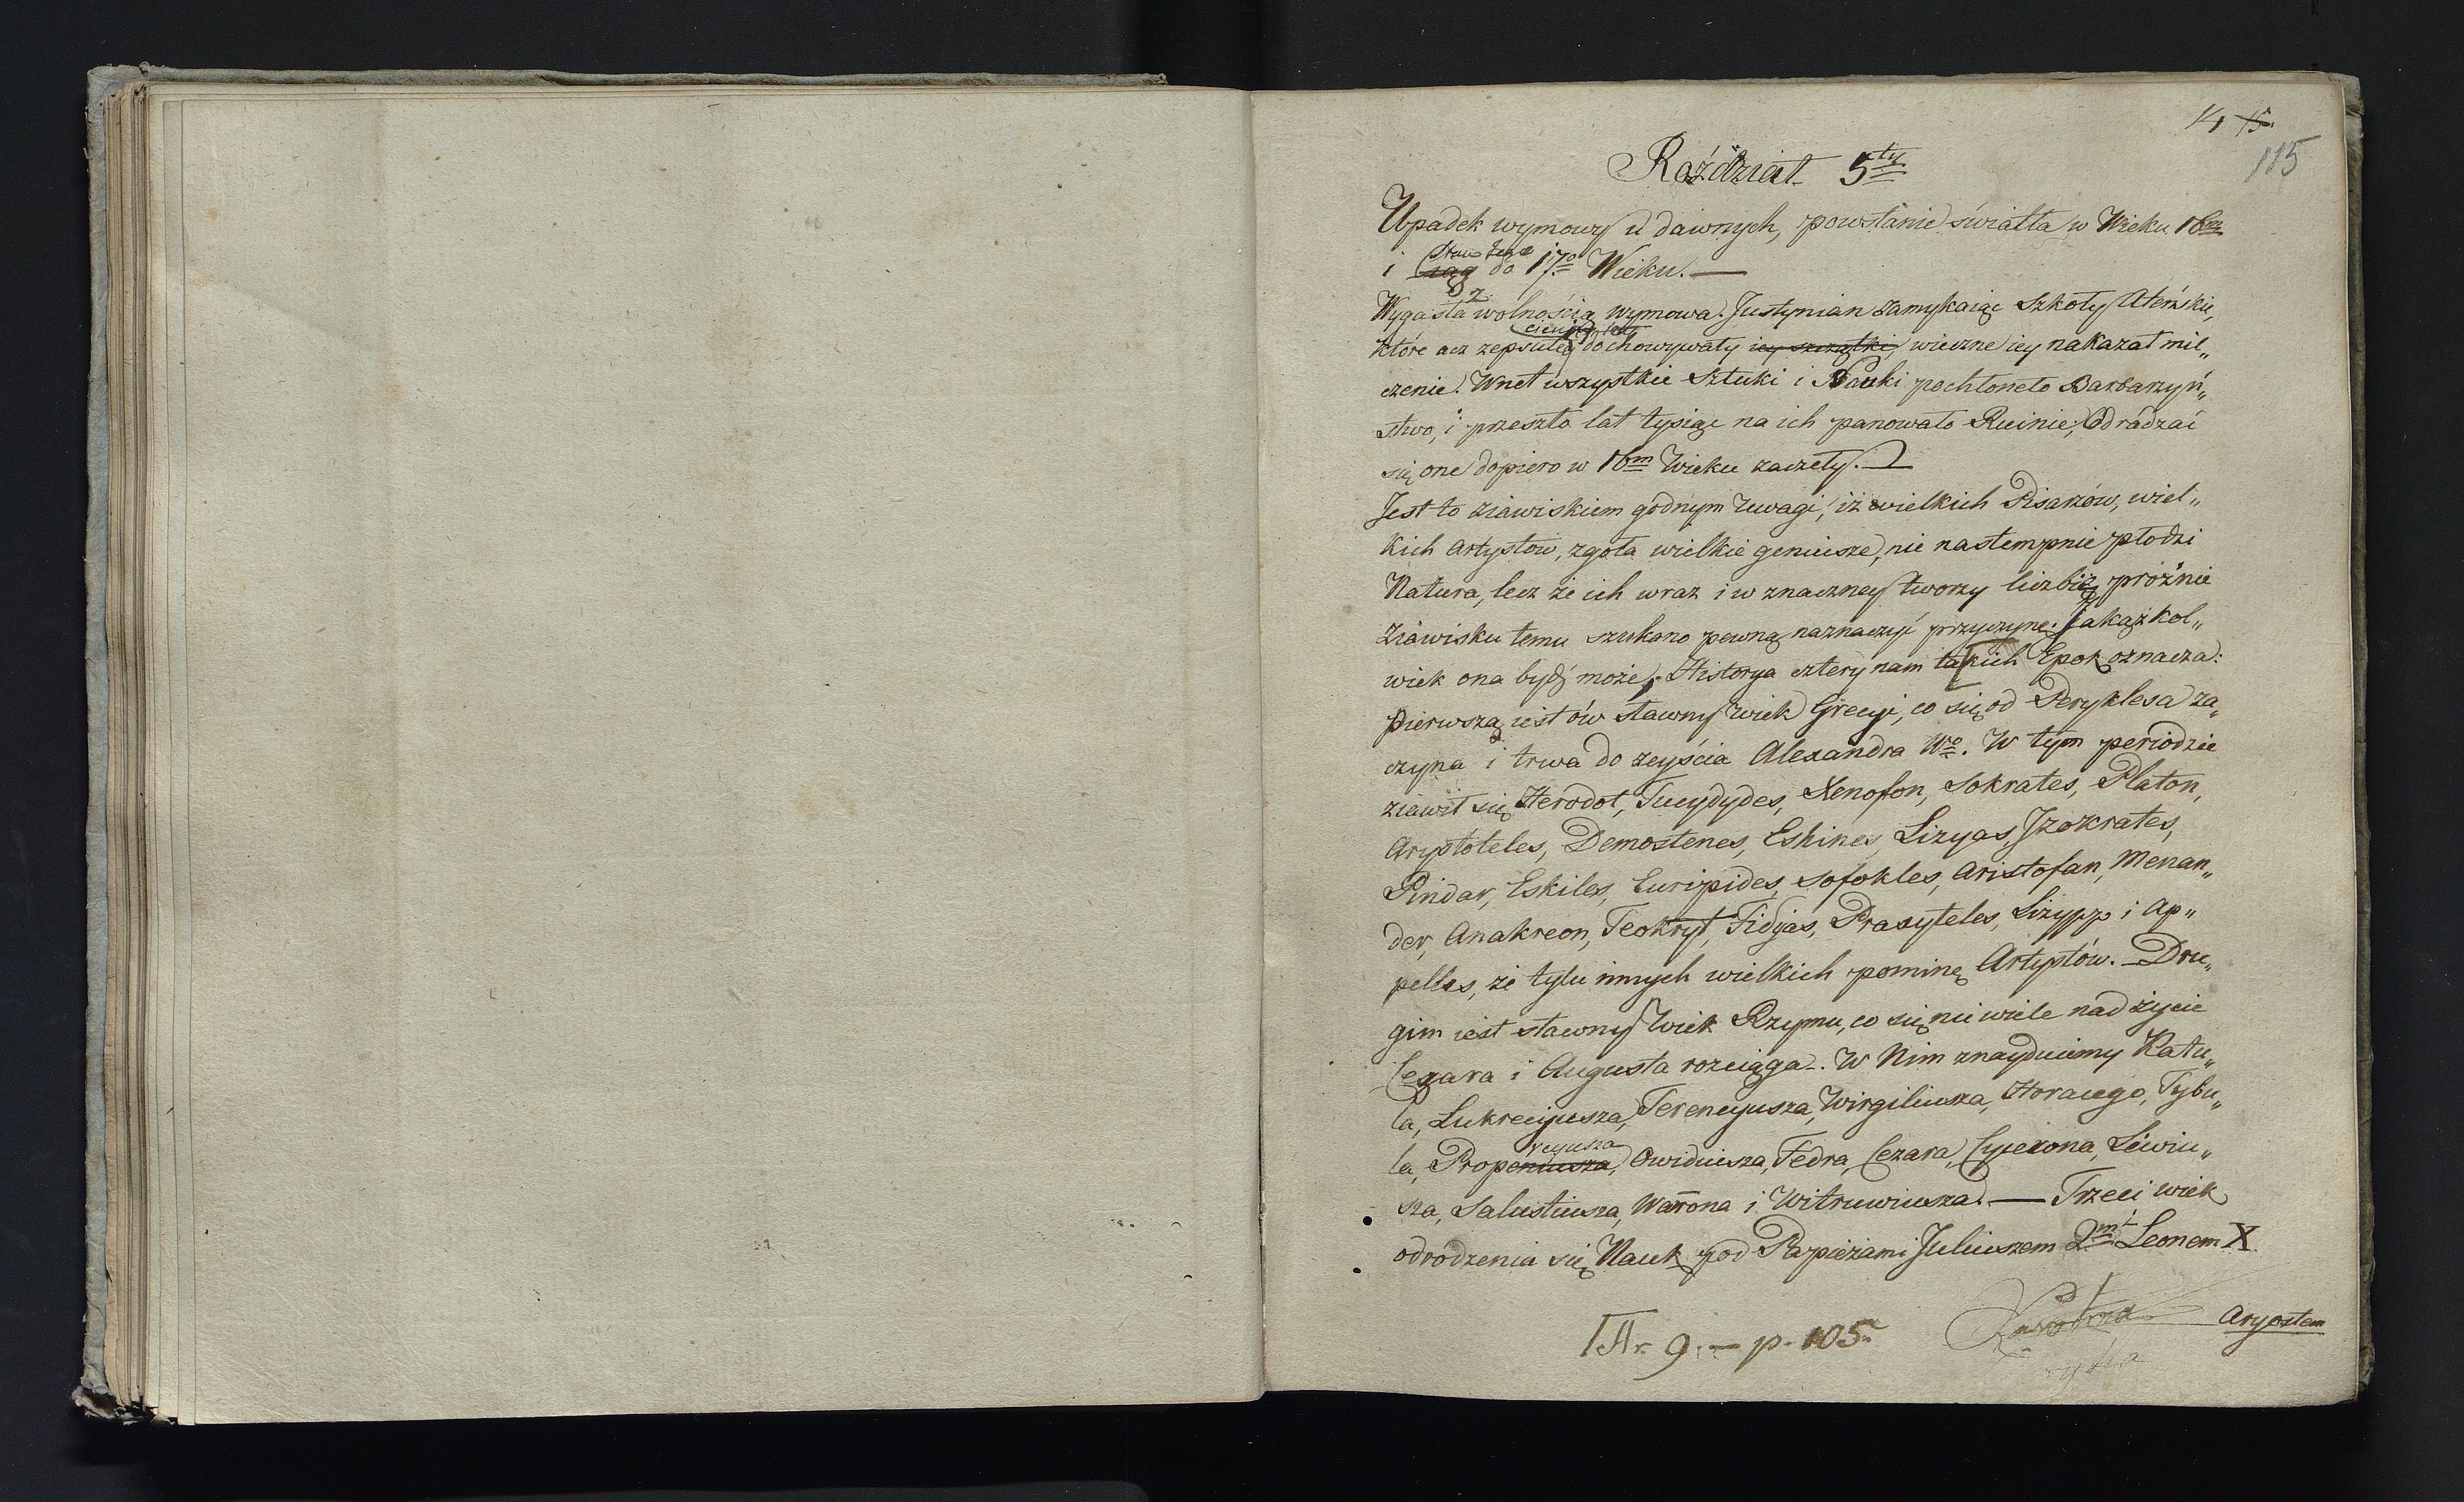 14 15.
115
Roździał 5ty
Upadek wymowy u dawnych, powstanie światła w Wieku 16m
i ciąg do 17o Wieku. —
Wygasła z wolnością wymowa. Justynian zamykaiąc Szkoły Ateńskie,
które acz zepsute dochowywały iey szczątki, wieczne iey nakazał mil„
czenie. Wnet wszystkie Sztuki i Nauki pochłoneło Barbarzyń„
stwo, i przeszło lat tysiąc na ich panowało Ruinie; Odradzać
się one dopiero w 16m Wieku zaczęły. —
Jest to ziawiskiem godnym Uwagi, iż wielkich Pisarzów, wiel„
kich Artystów, zgoła wielkie geniusze, nie nastempnie płodzi
Natura, lecz że ich wraz i w znaczney tworzy liczbie, próżnie
Ziawisku temu szukano pewną naznaczyć przyczynę. Jakążkol„
wiek ona bydź może, Historya cztery nam takich Epok oznacza:
Pierwszą iest ów sławny wiek Grecyi, co się od Peryklesa za„
czyna i trwa do zeyścia Alexandra Wo. W tym periodzie
ziawił się Herodot, Tucydydes, Xenofon, Sokrates, Platon,
Arystoteles, Demostenes, Eshines, Lizyas, Jzokrates,
Pindar, Eskiles, Euripides, Sofokles, Aristofan, Menan„
der, Anakreon, Teokryt, Fidyas, Praxyteles, Lizypp i Ap„
pelles, że tylu innych wielkich pominę Artystów. — Dru„
gim iest sławny Wiek Rzymu, co się nie wiele nad życie
Cezara i Augusta rozciąga. W Nim znayduiemy Katu„
la, Lukrecyusza, Terencyusza, Wirgiliusza, Horacego, Tybu„
la, Properniusza rcyusza, Owidiusza, Fedra, Cezara, Cycerona, Liwiu„
sza, Salustiusza, Warrona i Witruwiusza. — Trzeci wiek
odrodzenia się Nauk pod Papieżami Juliuszem 2m i Leonem X
Aryostem
Nr. 9. — p. 105.